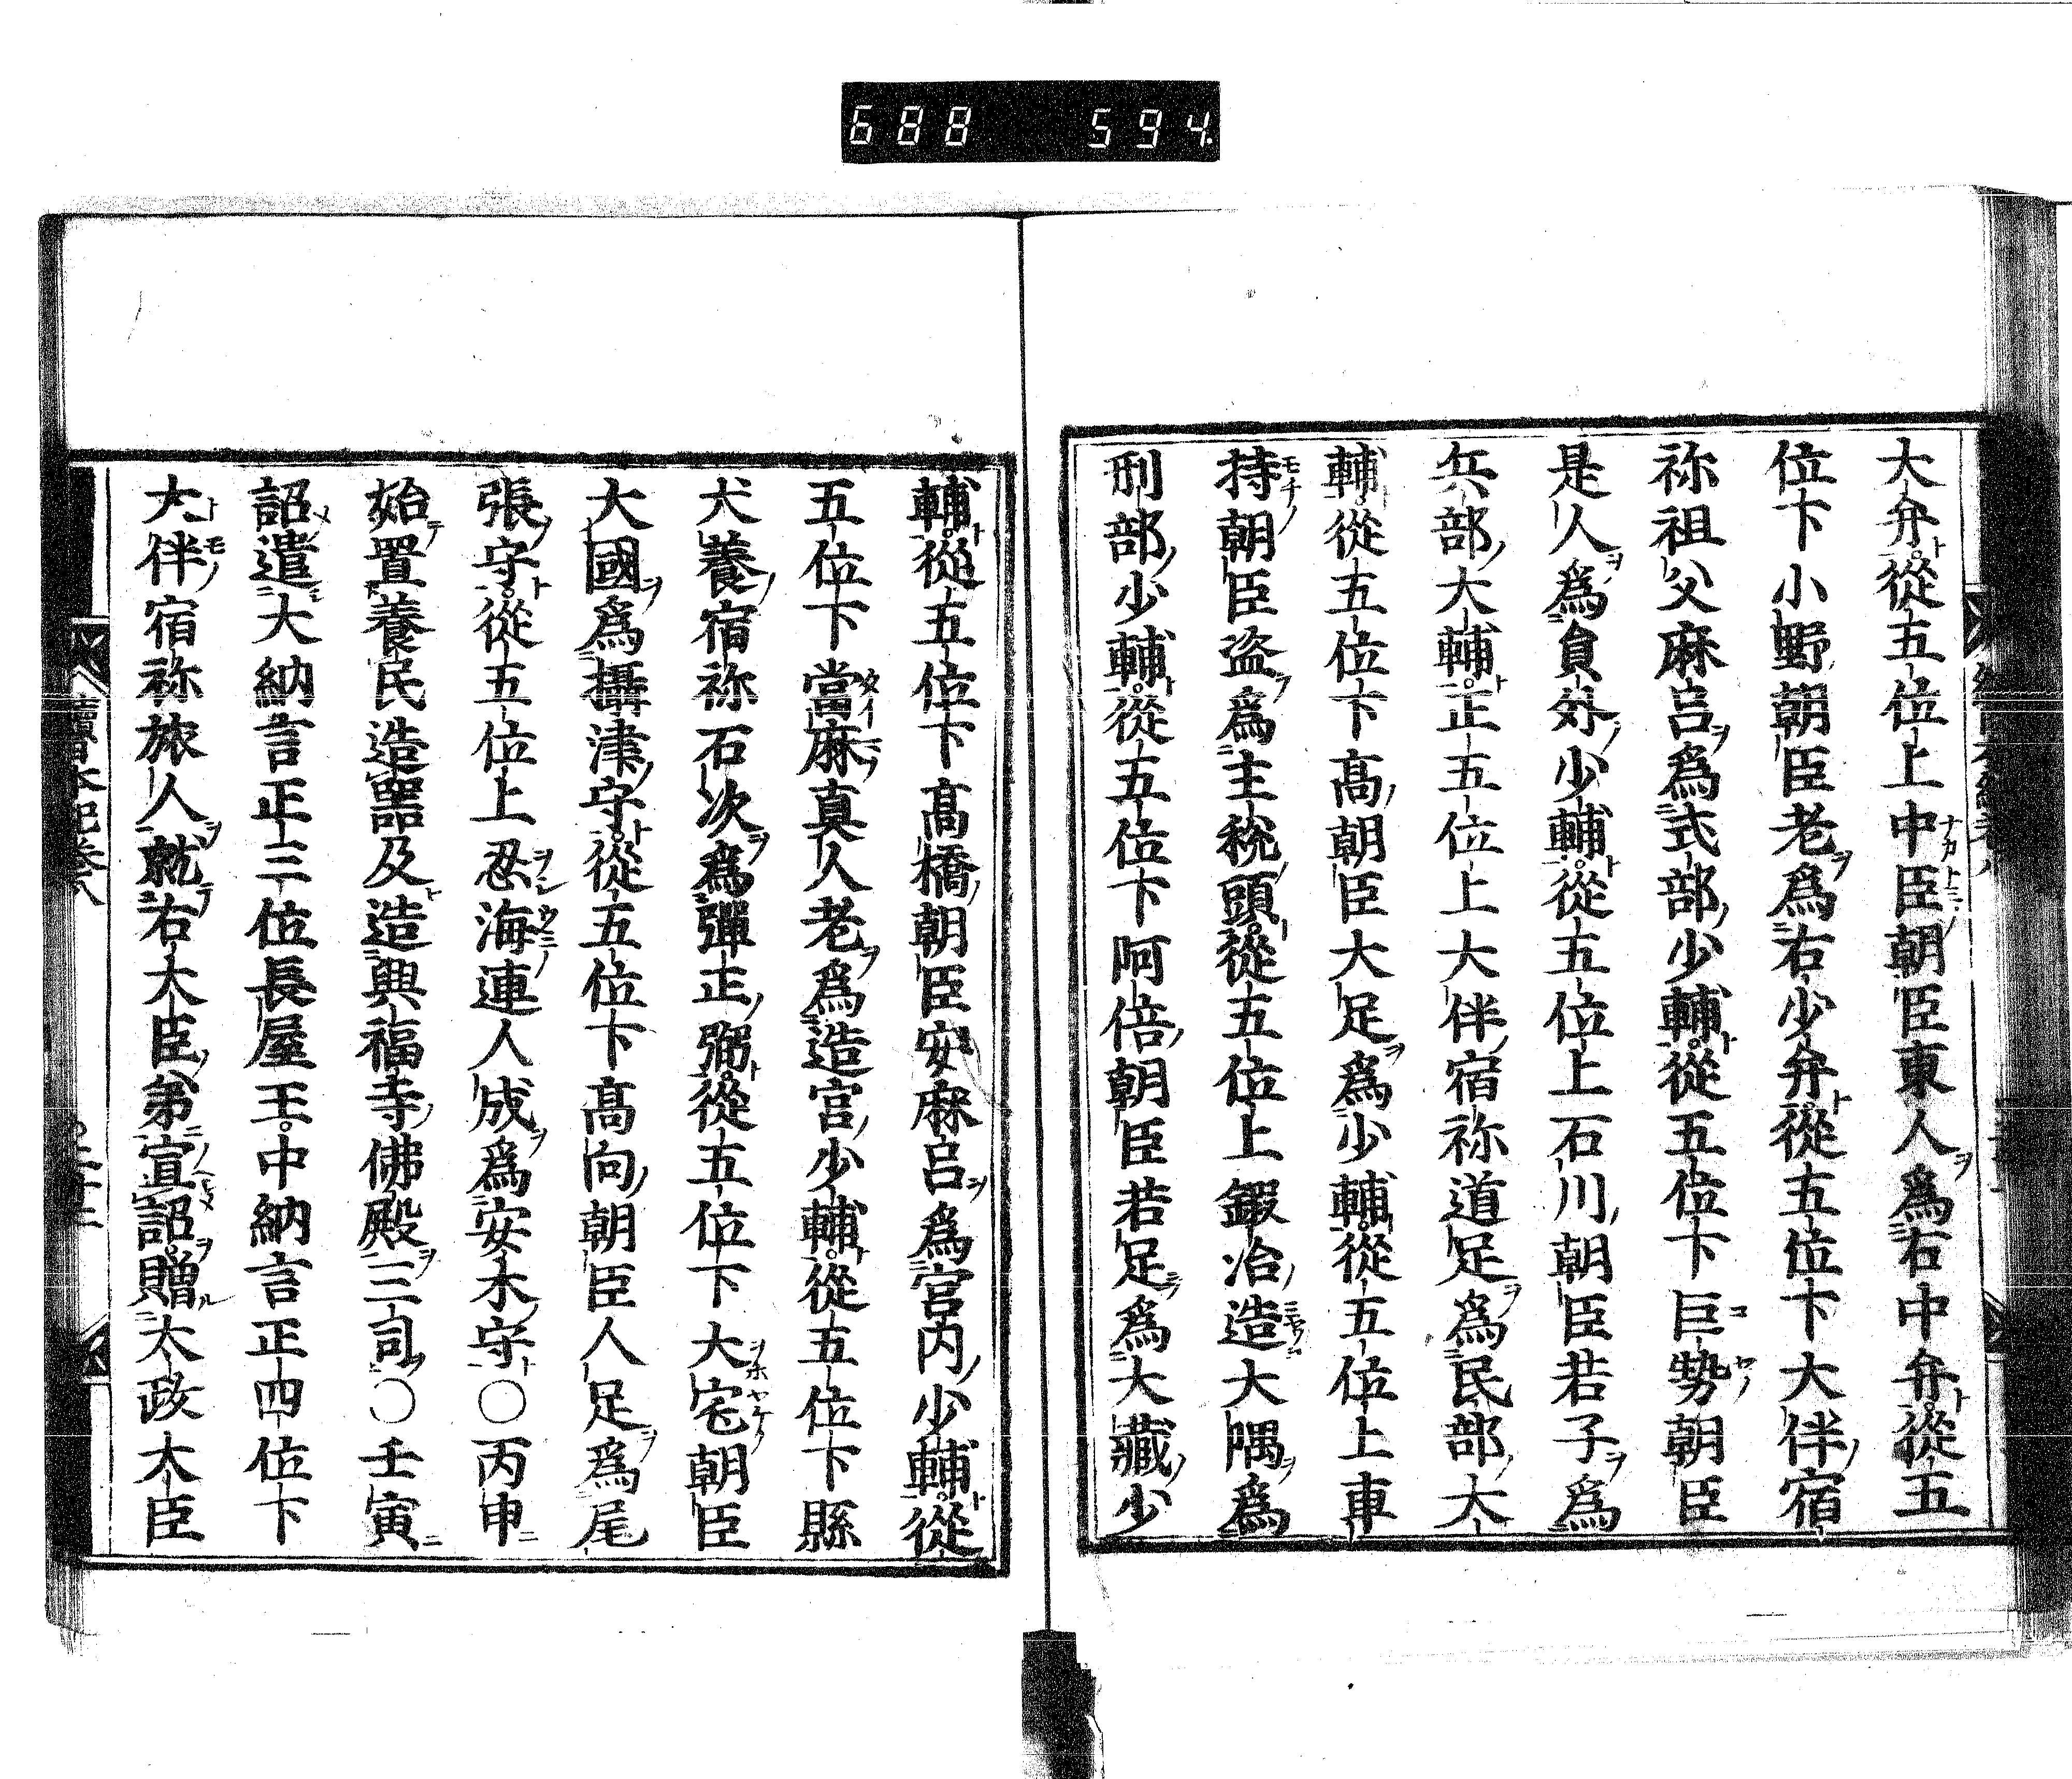 688 594
大弁。從五位上中臣朝臣東人爲右中弁。從五
位下小野朝臣老爲右少弁。從五位下大伴宿
祢祖父麻呂爲式部少輔。從五位下巨勢朝臣
是人爲員外少輔。從五位上石川朝臣若子爲
兵部大輔。正五位上大伴宿祢道足爲民部大
輔。從五位下髙朝臣大足爲少輔。從五位上車
持朝臣盗爲主稅頭。從五位上鍜冶造大隅爲
刑部少輔。從五位下阿倍朝臣若足爲大藏少
輔。從五位下髙橋朝臣安麻呂爲宮内少輔。從
五位下當麻真人老爲造宮少輔。從五位下縣
犬養宿祢石次爲彈正弼。從五位下大宅朝臣
大國爲攝津守。從五位下髙向朝臣人足爲尾
張守。從五位上忍海連人成爲安木守○丙申
始置養民造器及造興福寺佛殿三司○壬寅
詔遣大納言正三位長屋王。中納言正四位下
大伴宿祢旅人就右大臣第宣詔。贈太政大臣
續日本紀卷八